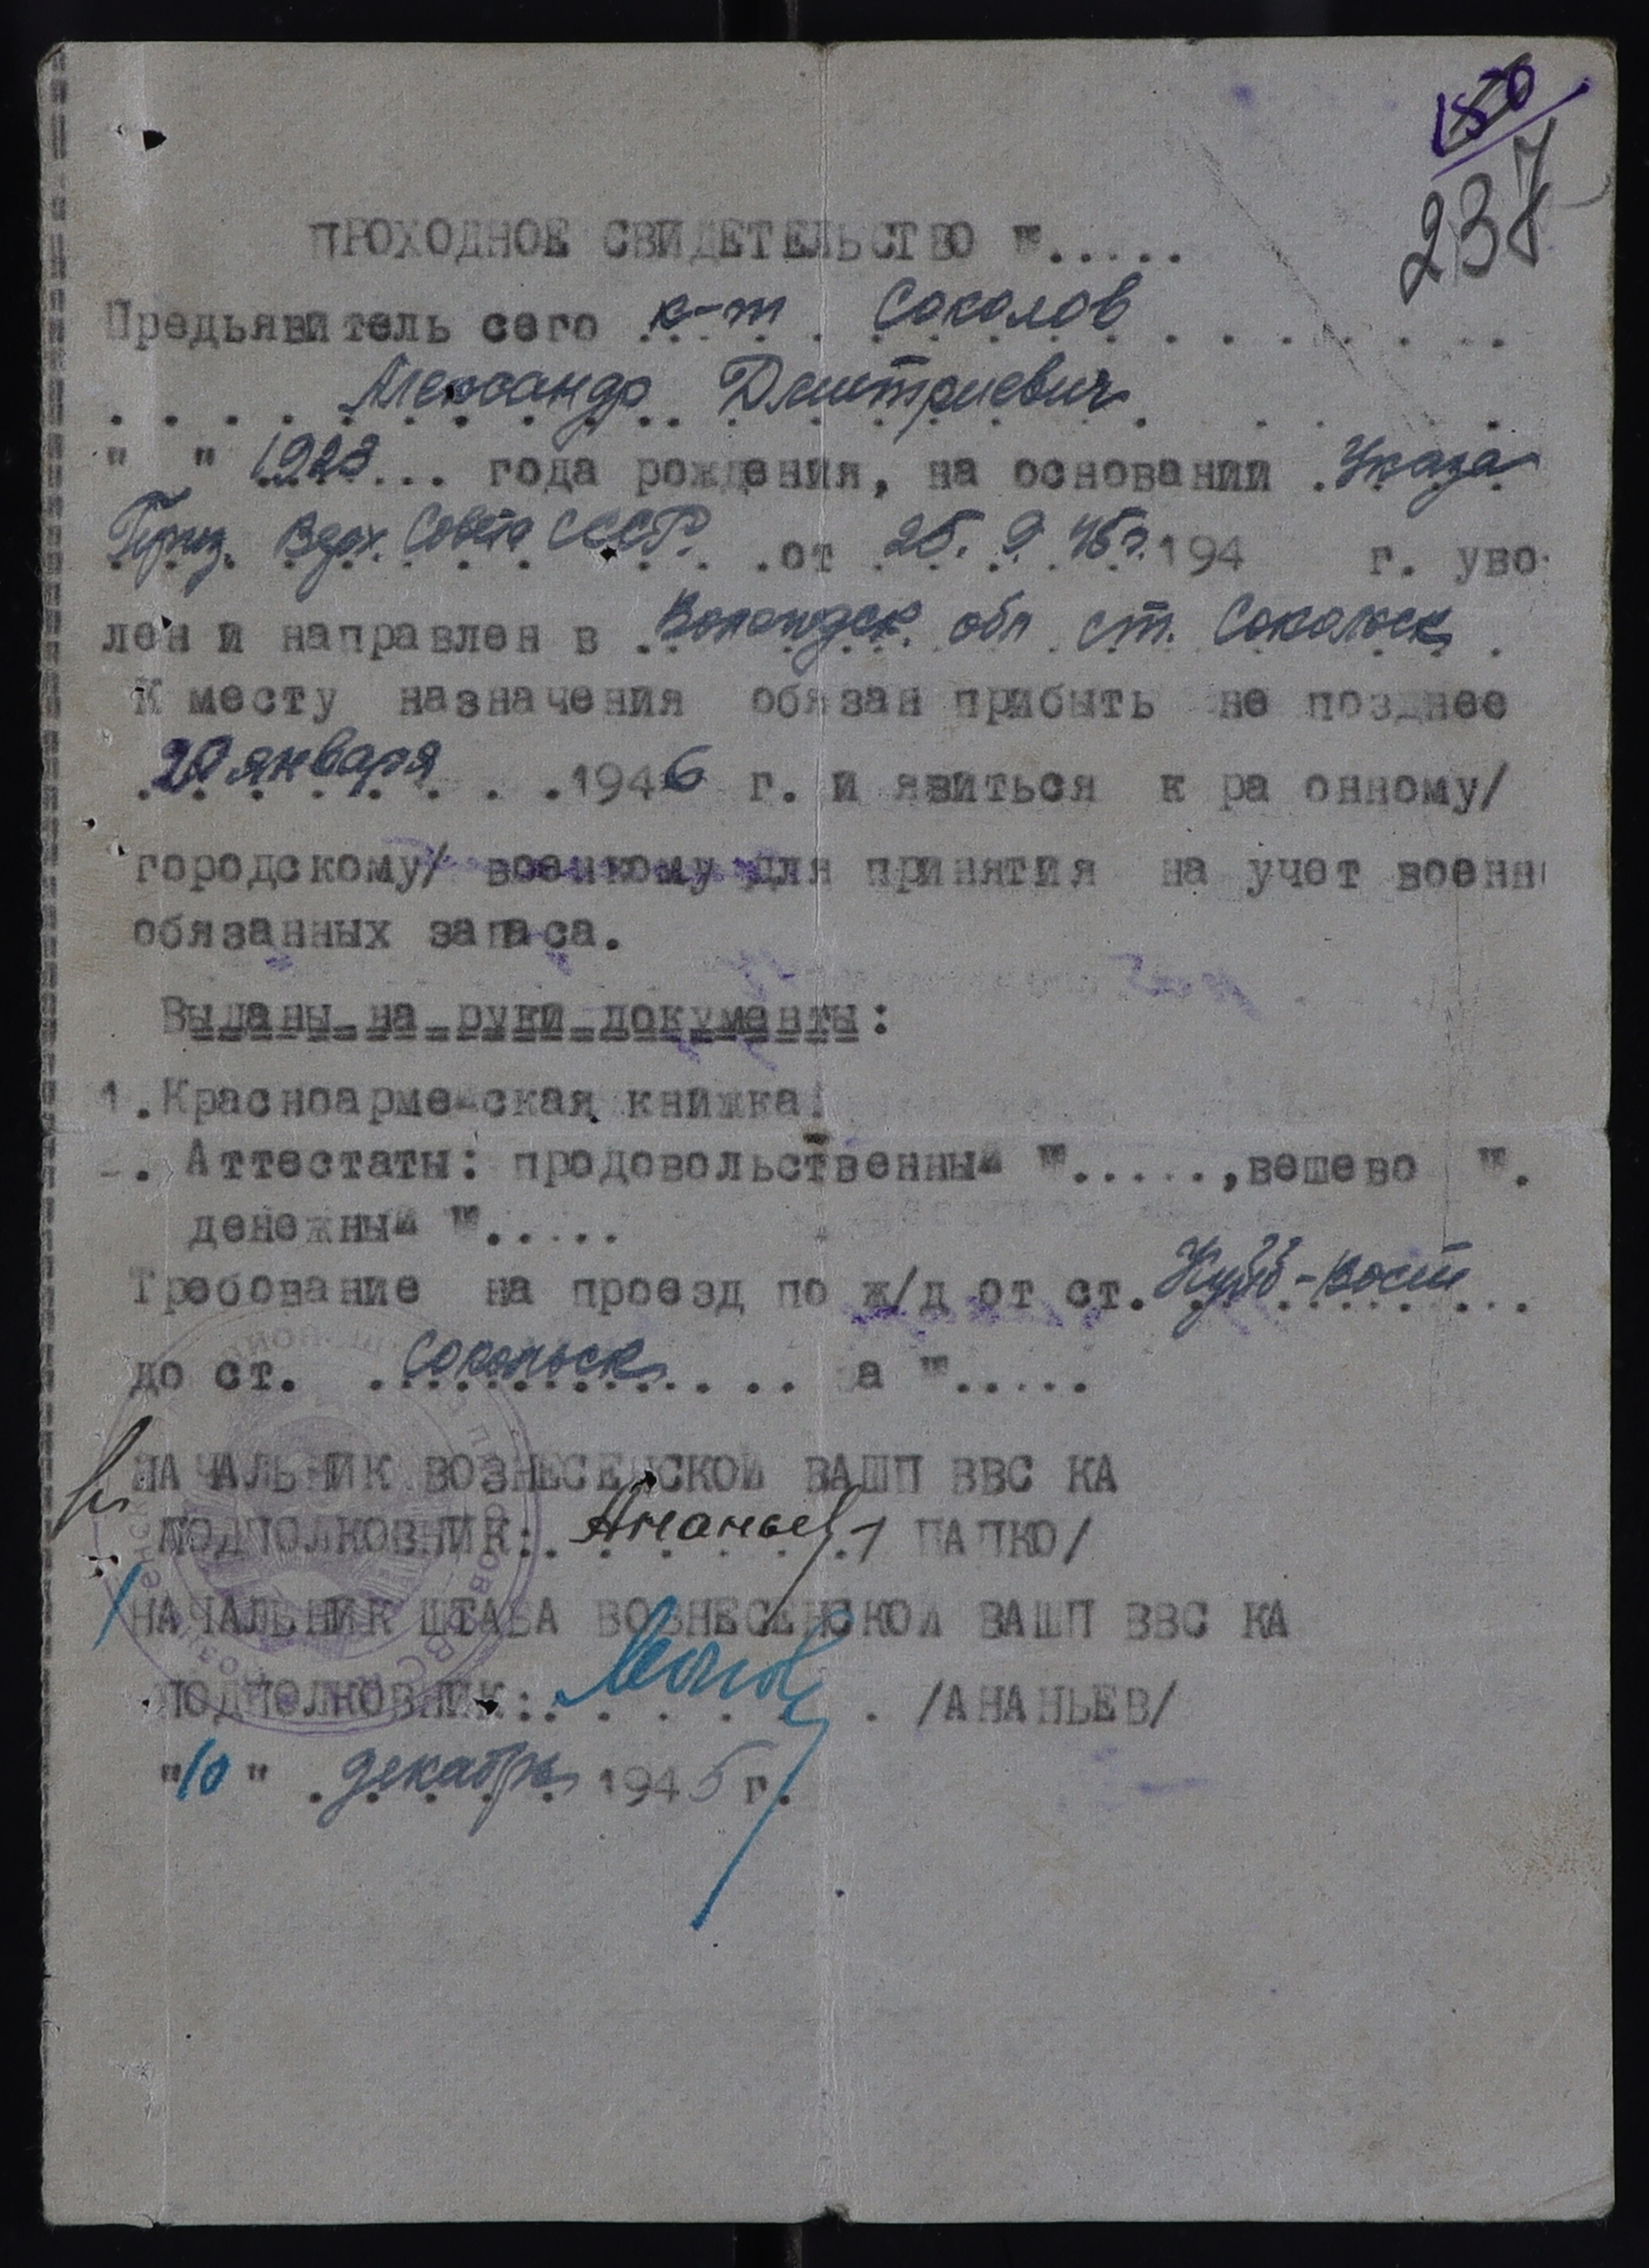 150
237
ПРОХОДНОЕ СВИДЕТЕЛЬСТВО №.....
Предьявитель сего к-т Соколов
Александр Дмитриевич
" " 1923... года рождения, на основании Указа
През. Верх. Совета СССР. от 25. 9. 45г. 194 г. уво
лен и направлен в Вологодск. обл ст. Сокольск
К месту назначения обязан прибыть не позднее
20 января 1946 г. и явиться к ра онному/
городскому/ военкому для принятия на учет воен
обязанных запаса.
Выданы на руки документы:
1. Красноармейская книжка.
. Аттестаты: продовольственный №....., вещево №.
денежный №.....
Требование на проезд по ж/д от ст. Куйб-Вост
до ст. Сокольск за №.....
НАЧАЛЬНИК ВОЗНЕСЕНСКОЙ ВАШП ВВС КА
ПОДПОЛКОВНИК: Ананьев / ПАПКО/
НАЧАЛЬНИК ШТАБА ВОЗНЕСЕНСКОЙ ВАШП ВВС КА
ПОДПОЛКОВНИК: /АНАНЬЕВ/
"10" декабря 1945 г.